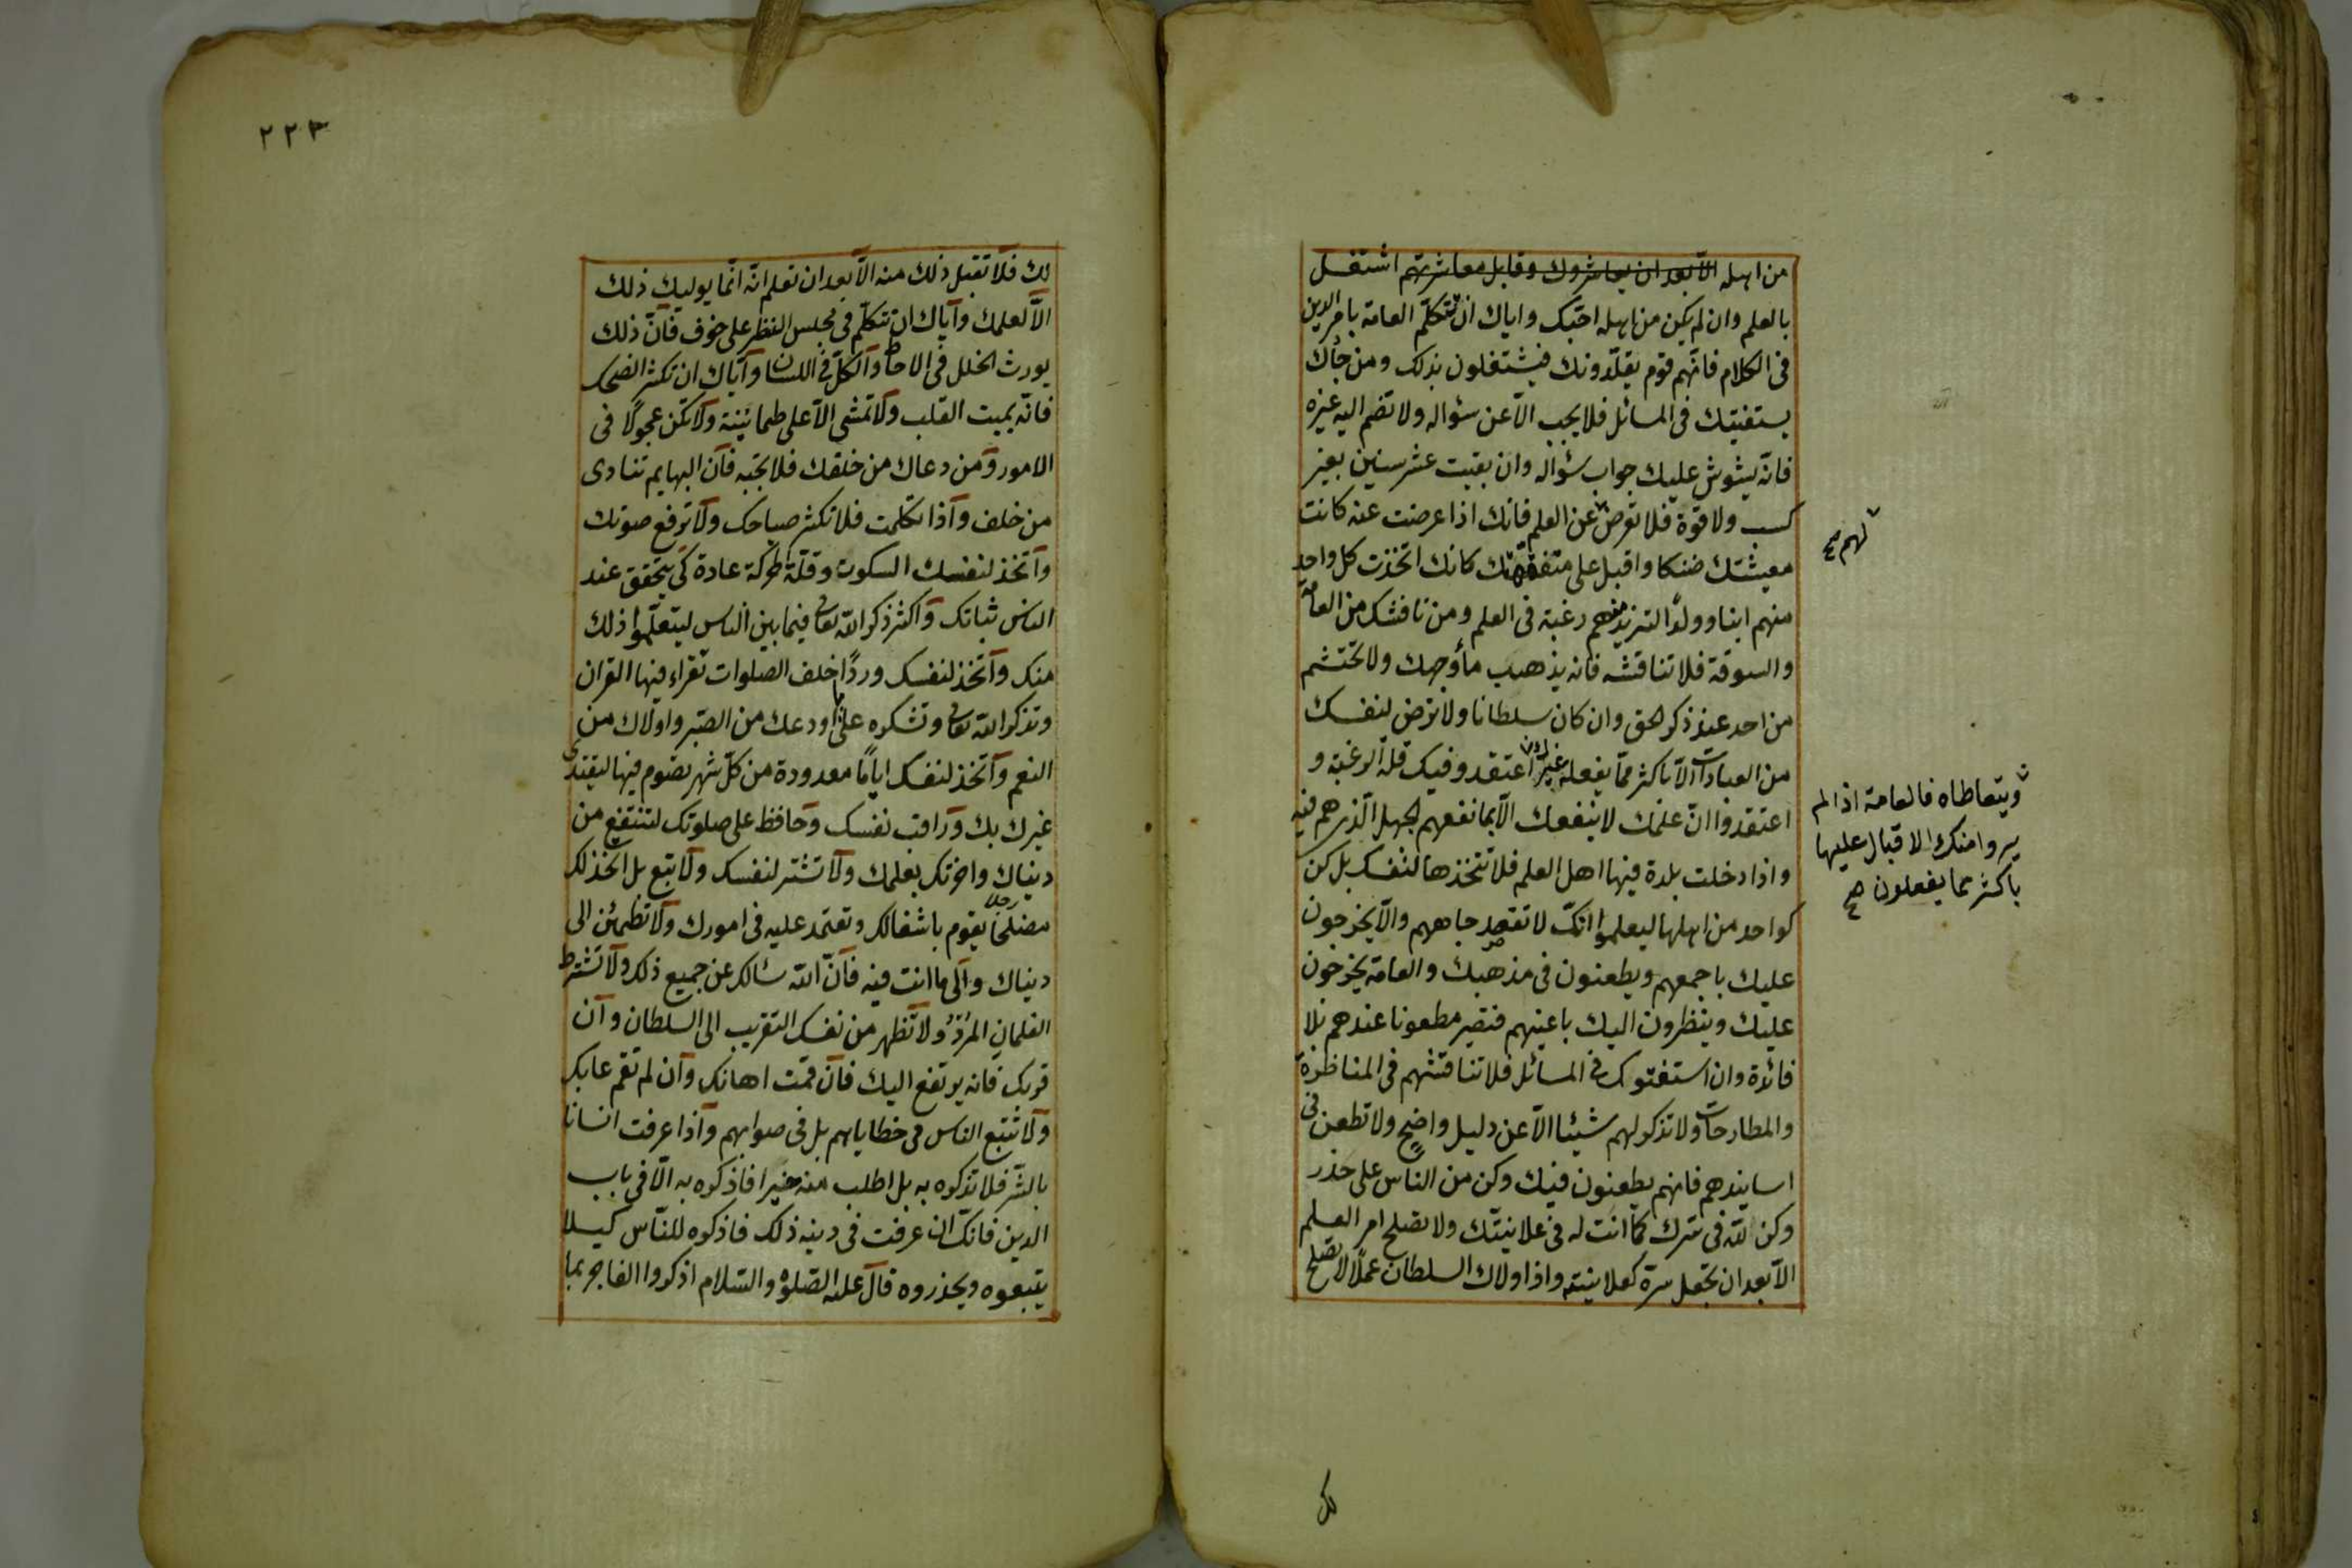 من اهله الا بعد ان يعاشروك وقابل معاشرتهم اشتغل
بالعلم وان لم يكن من اهله احبّك واياك ان تتكلّم العامة بامر الدين
فى الكلام فانّهم قوم يقلّدونك فيشتغلون بذلك ومن جاءك
يستفتيك فى المسائل فلا يجب الّا عن سؤاله ولا تضم اليه غيره
فانّه يشوش عليك جواب سؤاله وان بقيت عشر سنين بغير
كسب ولا قوة فلا تعرض عن العلم فانك اذا عرضت عنه كانت
معيشتك ضنكا واقبل على متفقهتك كانك اتخذت كل واحد
منهم ابنا وولدًا لتزيدهم رغبة فى العلم ومن ناقشك من العامة
والسوقة فلا تناقشه فانه يذهب ماء وجهك ولا تحتشم
من احد عند ذكر الحق وان كان سلطانا ولا ترض لنفسك
من العبادات الّا باكثر ممّا يفعله غيرك اعتقدو فيك قلة الرغبة و
اعتقدوا انّ علمك لا ينفعك الّا بما نفعهم الجهل الّذى هم فيه
واذا دخلت بلدة فيها اهل العلم فلا تتخذها لنفسك بل كن
كواحد من اهلها ليعلموا انّك لا تقصد جاههم والّا يخرجون
عليك باجمعهم ويطعنون فى مذهبك والعامة يخرجون
عليك وينظرون اليك باعينهم فتصير مطعونا عندهم بلا
فائدة وان استفتوك فى المسائل فلا تناقشهم فى المناظرة
والمطارحات ولا تذكر لهم شيئا الّا عن دليل واضح ولا تطعن فى
اساتيذهم فانهم يطعنون فيك وكن من الناس على حذر
وكن لله فى سرك كما انت له فى علانيتك ولا تصلح امر العلم
الّا بعد ان تجعل سرّه كعلانيته واذا اولاك السلطان عملًا لا يصلح
لهم صح
ويتعاطاه فالعامة اذا لم
يروا منك الاقبال عليها
باكثر مما يفعلون صح
لك
٢٢٣
لك فلا تقبل ذلك منه الّا بعد ان تعلم انّه انّما يوليك ذلك
الّا لعلمك وايّاك ان تتكلّم فى مجلس النظر على خوف فانّ ذلك
يورث الخلل فى الاحاطة والكلّ فى اللسان وايّاك ان تكثر الضحك
فانّه يميت القلب ولا تمشى الّا على طمانينة ولا تكن عجولًا فى
الامور ومن دعاك من خلفك فلا تجبه فان البهايم تنادى
من خلف واذا تكلمت فلا تكثر صياحك ولا ترفع صوتك
واتخذ لنفسك السكوت وقلّة الحركة عادة كى يتحقق عند
الناس ثباتك واكثر ذكر الله تعالى فيما بين الناس ليتعلّموا ذلك
منك واتخذ لنفسك وردًا خلف الصلوات تقراء فيها القران
وتذكر الله تعالى وتشكره على ما اودعك من الصبر واولاك من
النعم واتخذ لنفسك ايامًا معدودة من كلّ شهر تصوم فيها ليقتدى
غيرك بك وراقب نفسك وحافظ على صلوتك لتنتفع من
دنياك واخرتك بعلمك ولا تشتر لنفسك ولا تبع بل اتخذ لك
رجلا مصلحًا يقوم باشغالك وتعتمد عليه فى امورك ولا تطمئن الى
دنياك والى ما انت فيه فانّ الله سائلك عن جميع ذلك ولا تشترط
الغلمان المرد ولا تظهر من نفسك التقريب الى السلطان وان
قربك فانه يرتفع اليك فان قمت اهانك وان لم تقم عابك
ولا تتبع الناس فى خطاياهم بل فى صوابهم واذا عرفت انسانا
بالشرّ فلا تذكره به بل اطلب منه خيرا فاذكره به الّا فى باب
الدين فانّك ان عرفت فى دينه ذلك فاذكره للنّاس كيلا
يتبعوه ويحذروه قال عليه الصلوة والسّلام اذكروا الفاجر بما